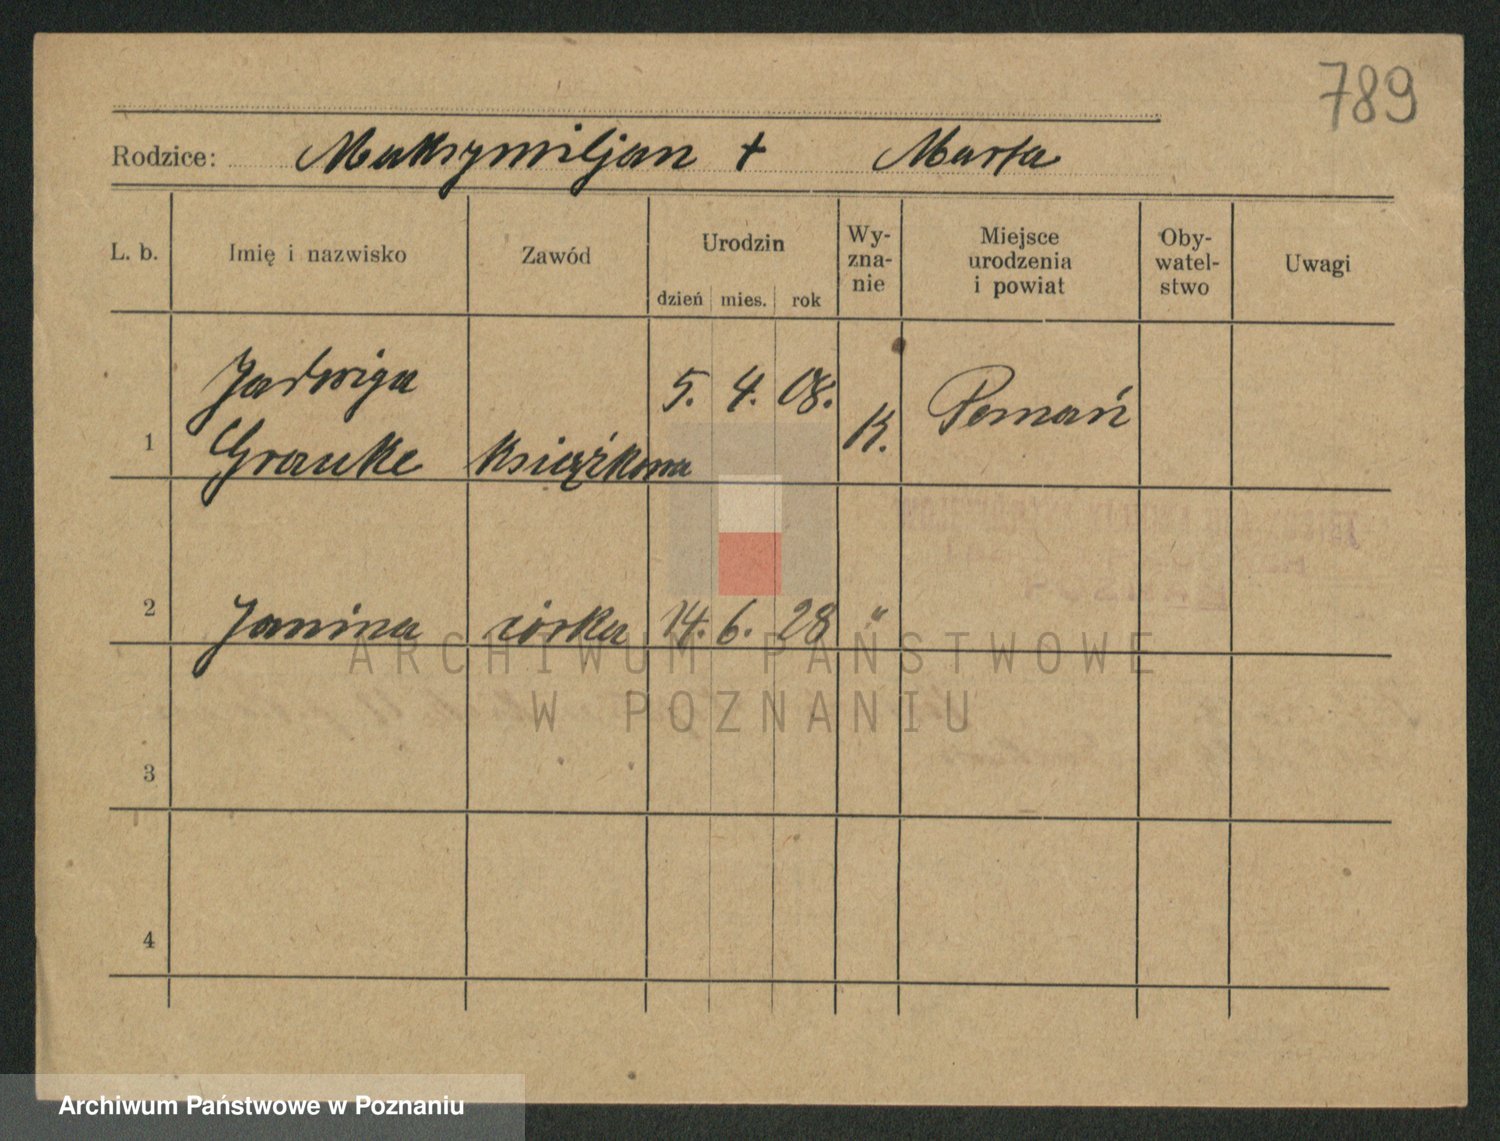 789
Rodzice: Maksymiljan + Marta
L. b. Imię i nazwisko Zawód Urodzin dzień mies. rok Wy-zna-nie Miejsce urodzenia i powiat Oby-watel-stwo Uwagi
Jadwiga 5. 4. 08. K. Poznań
1 Grauke książkowa
2 Janina córka 14. 6. 28 "
ARCHIWUM PAŃSTWOWE
W POZNANIU
3
4
Archiwum Państwowe w Poznaniu